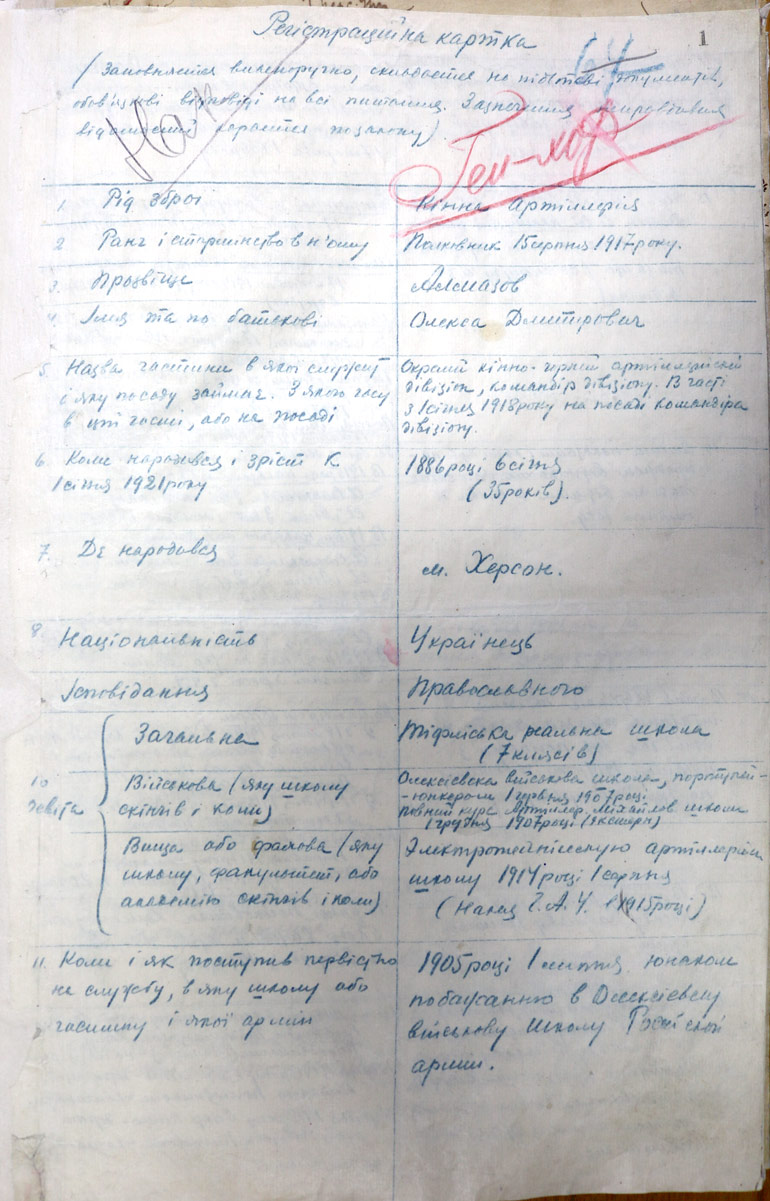 Регістраційна картка
1
64
/ Заповняється власноручно, складається на підставі документів,
обов'язкові відповіді на всі питання. Зазначення
відомостей карається по закону).
Ген-хор
1. Рід зброї
Кінна Артілерія
2 Ранг і старшинство в н'ому
Полковник 15 серпня 1917 року.
3. Прозвіще
Алмазов
4. Імя та по батькові
Олекса Дмитрович
5. Назва частини в якої служит
і яку посаду займає. З якого часу
в цій часті, або на посаді
Окремий кінно-гірний артілерійский
дівізіон, командір дівізіону. В часті
з 1 січня 1918 року на посаді командіра
дівізіону.
6. Коли народився і зріст к
1 січня 1921 року
1886 році в січня
(35 років).
7. Де народився
м. Херсон.
8. Національність
Українець
Ісповідання
Православного
10
Загальна
Тіфліська реальна школа
(7 клясів)
Військова (яку школу
скінчів і коли)
Олексієвска військова школа, портупей-
-юнкером 1 червня 1907 році
повний курс Артілер. Міхайлов школи
1 грудня 1907 році (Экстерн)
Вища або фахова (яку
школу, факультет, або
академію скінчів і коли)
Электротехніческую артілерійск
школу 1914 році 1 серпня
(Наказ Г.А.У. 1915 році)
11. Коли і як поступив первістно
на службу, в яку школу або
частину і якої армии
1905 році 1 липня юнаком
по бажанню в Олексієвску
військову школу Російской
армии.